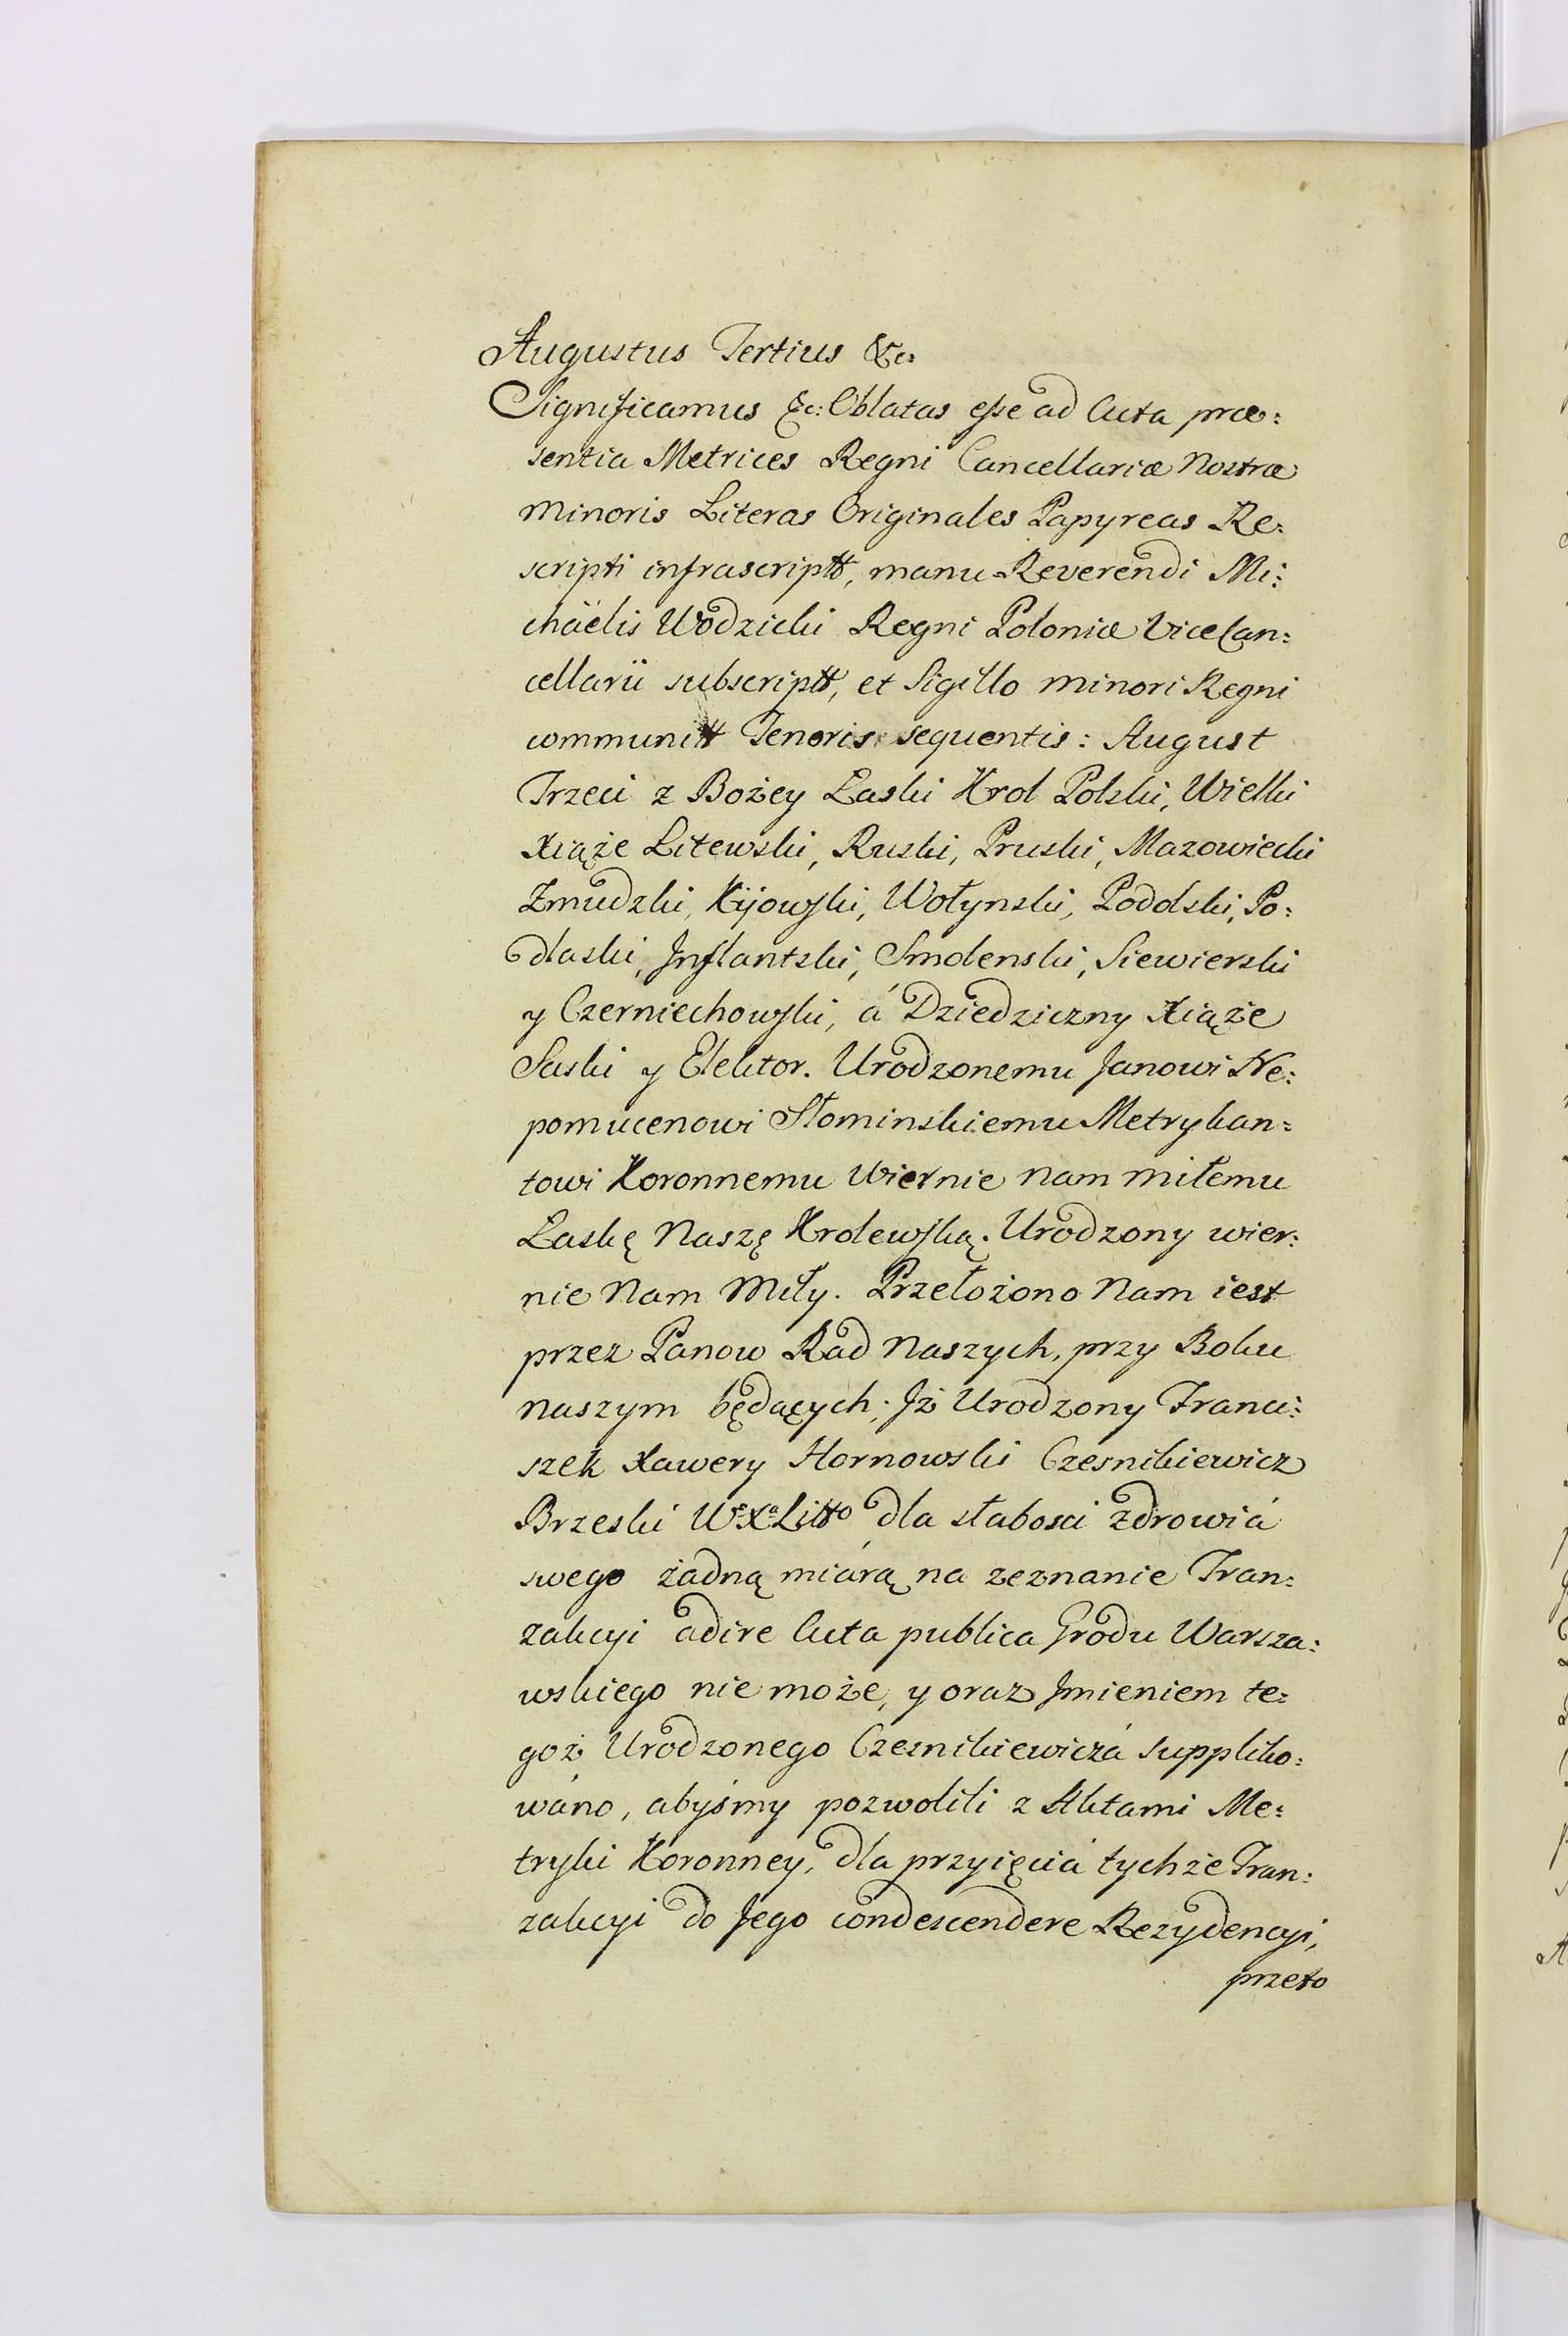 Augustus Tertius &c:
Significamus &c: Oblatas esse ad Acta præ:
sentia Metrices Regni Cancellariæ Nostræ
Minoris Literas Originales Papyreas Re:
scripti infrascriptt, manu Reverendi Mi:
chaëlis Wodzicki Regni Poloniæ ViceCan:
cellarii subscriptt, et Sigillo minori Regni
communitt Tenoris sequentis: August
Trzeci z Bożey Łaski Krol Polski, Wielki
Xiąże Litewski, Ruski, Pruski, Mazowiecki
Zmudzki, Kijowski, Wołynski, Podolski, Po:
dlaski, Inflantski, Smolenski, Siewierski
y Czerniechowski, á Dziedziczny Xiąże
Saski y Elektor. Urodzonemu Janowi Ne:
pomucenowi Słominskiemu Metrykan:
towi Koronnemu Wiernie nam miłemu
Łaskę Naszę Krolewską. Urodzony wier:
nie Nam Miły. Przełożono Nam iest
przez Panow Rad Naszych, przy Boku
naszym będących; Jż Urodzony Franci:
szek Xawery Hornowski Czesnikiewicz
Brzeski W.X.Litto dla słabosci zdrowiá
swego żadną miárą na zeznanie Tran:
zakcyi adire Acta publica Grodu Warsza:
wskiego nie może, y oraz Jmieniem te:
goż Urodzonego Czesnikiewiczá suppliko:
wáno, abyśmy pozwolili z Aktami Me:
tryki Koronney, dla przyięciá tychże Tran:
zakcyi do Jego condescendere Rezydencyi,
przeto